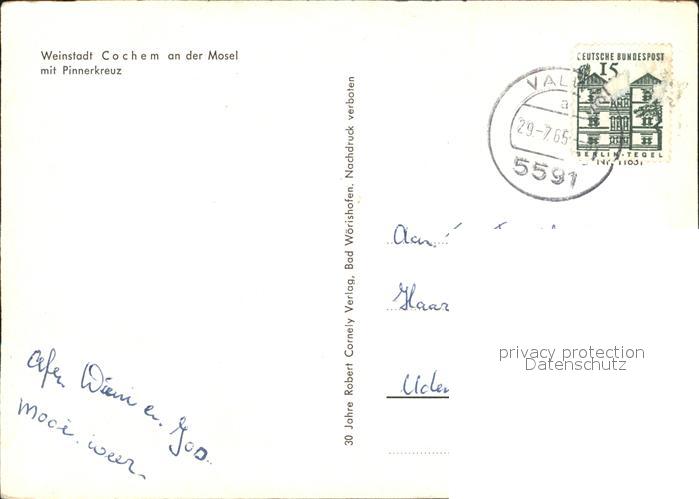 Weinstadt Cochem an der Mosel
mit Pinnerkreuz
30 Jahre Robert Cornely Verlag, Bad Wörishofen. Nachdruck verboten
DEUTSCHE BUNDESPOST
15
BERLIN-TEGEL
VAL
a
29-7.65
5591
Aan
Haar
Uden
privacy protection
Datenschutz
Wim en Jos.
Mooi weer.